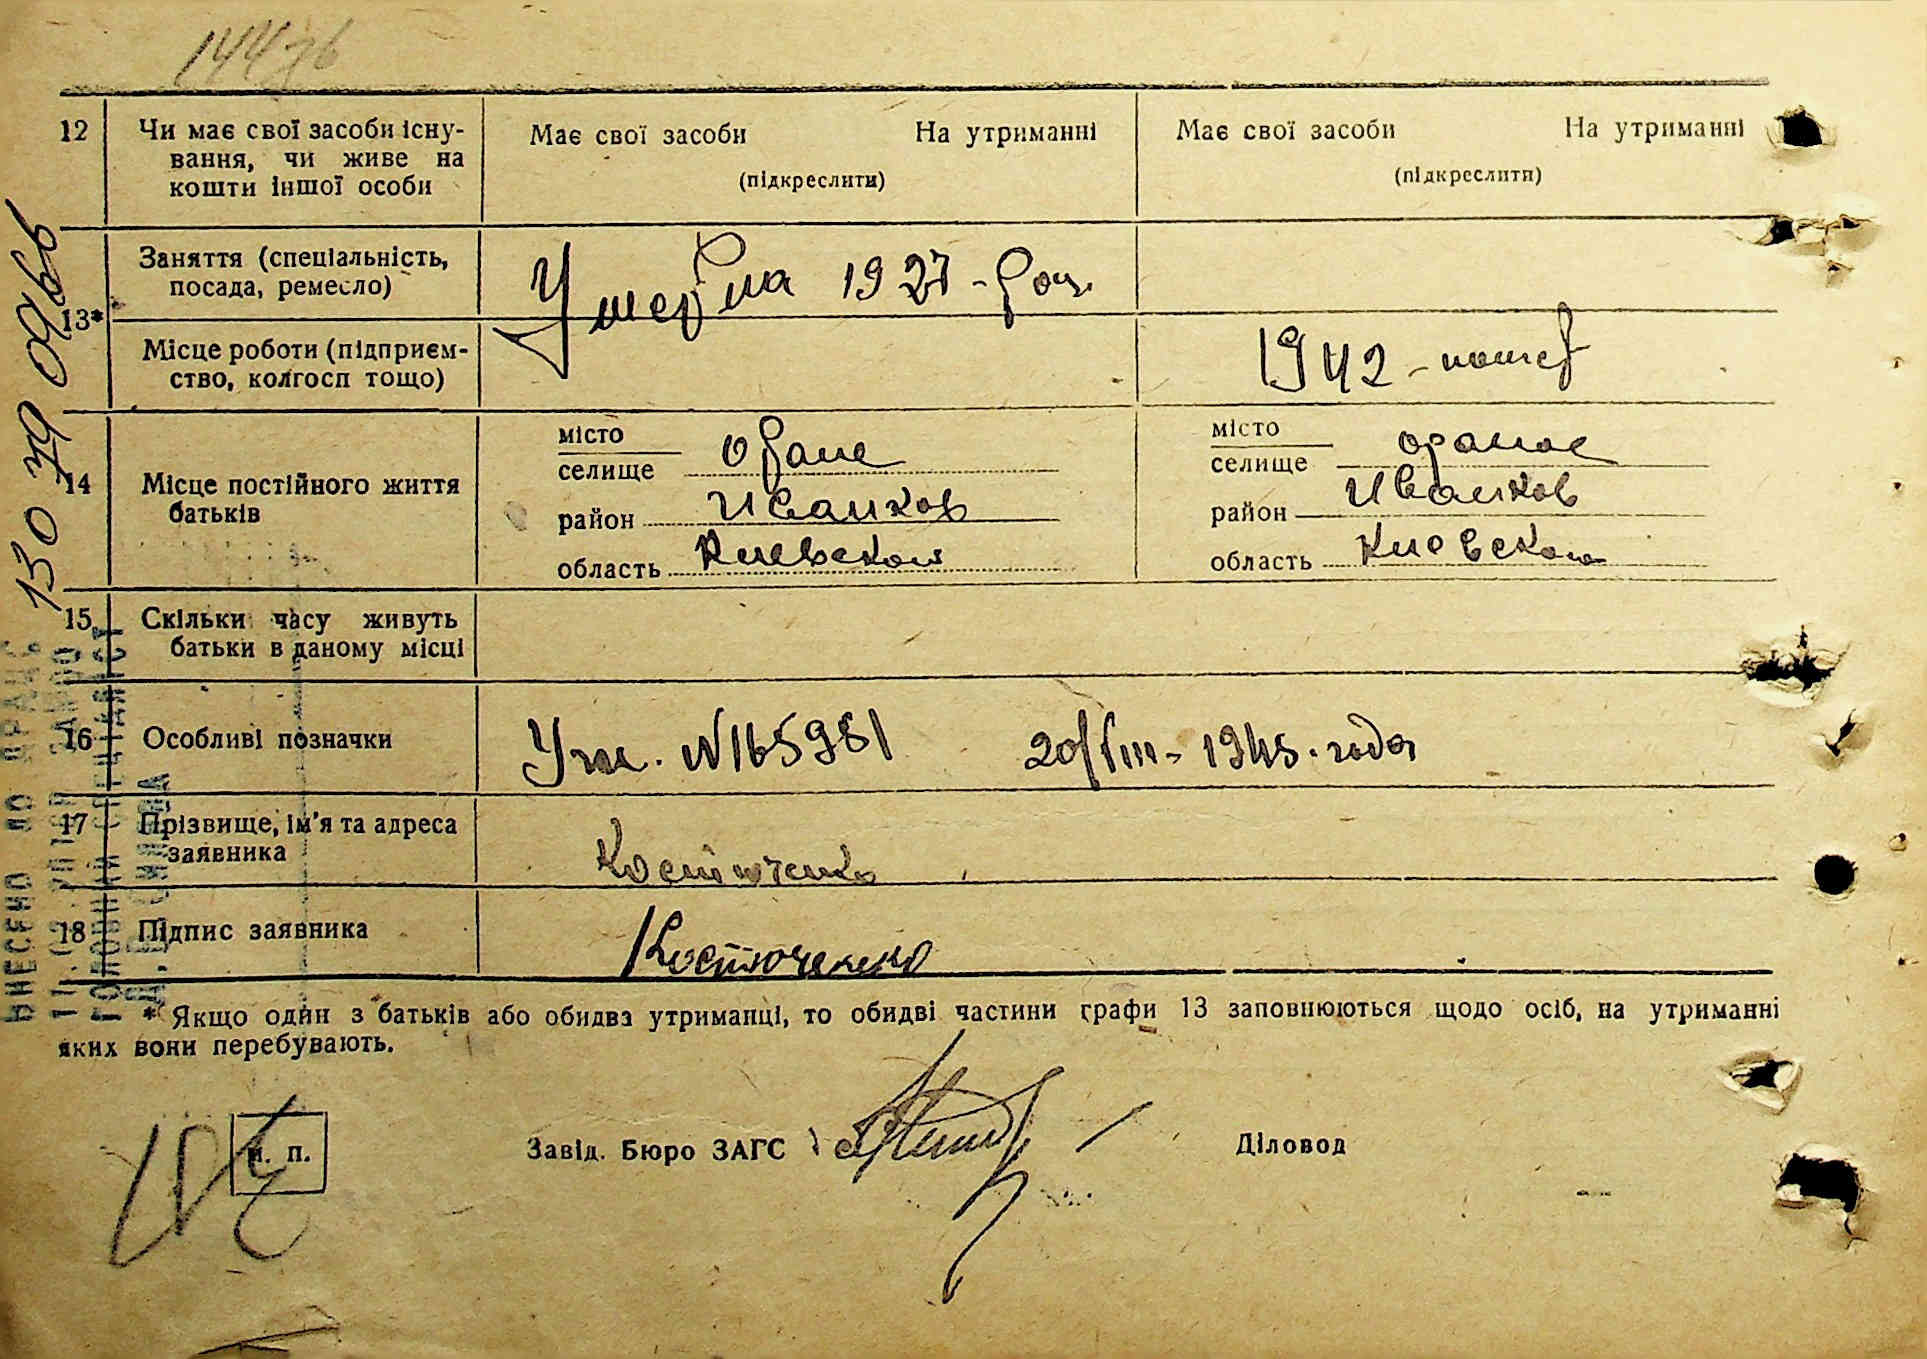 12 Чи має свої засоби існу-
вання, чи живе на
кошти іншої особи
Має свої засоби На утриманні
(підкреслити)
Має свої засоби На утриманні
(підкреслити)
13*
Заняття (спеціальність,
посада, ремесло)
1927
Місце роботи (підприєм-
ство, колгосп тощо)
1942 -
14 Місце постійного життя
батьків
місто
селище Оране
район Иванков
область Киевской
місто
селище Ораное
район Иванков
область Киевской
15 Скільки часу живуть
батьки в даному місці
16 Особливі позначки
N 165981 20/VIII - 1945 года
17 Прізвище, ім'я та адреса
заявника
Костюченко
18 Підпис заявника
Костюченко
* Якщо один з батьків або обидва утриманці, то обидві частини графи 13 заповнюються щодо осіб, на утриманні
яких вони перебувають.
М. П.
Завід. Бюро ЗАГС
Діловод